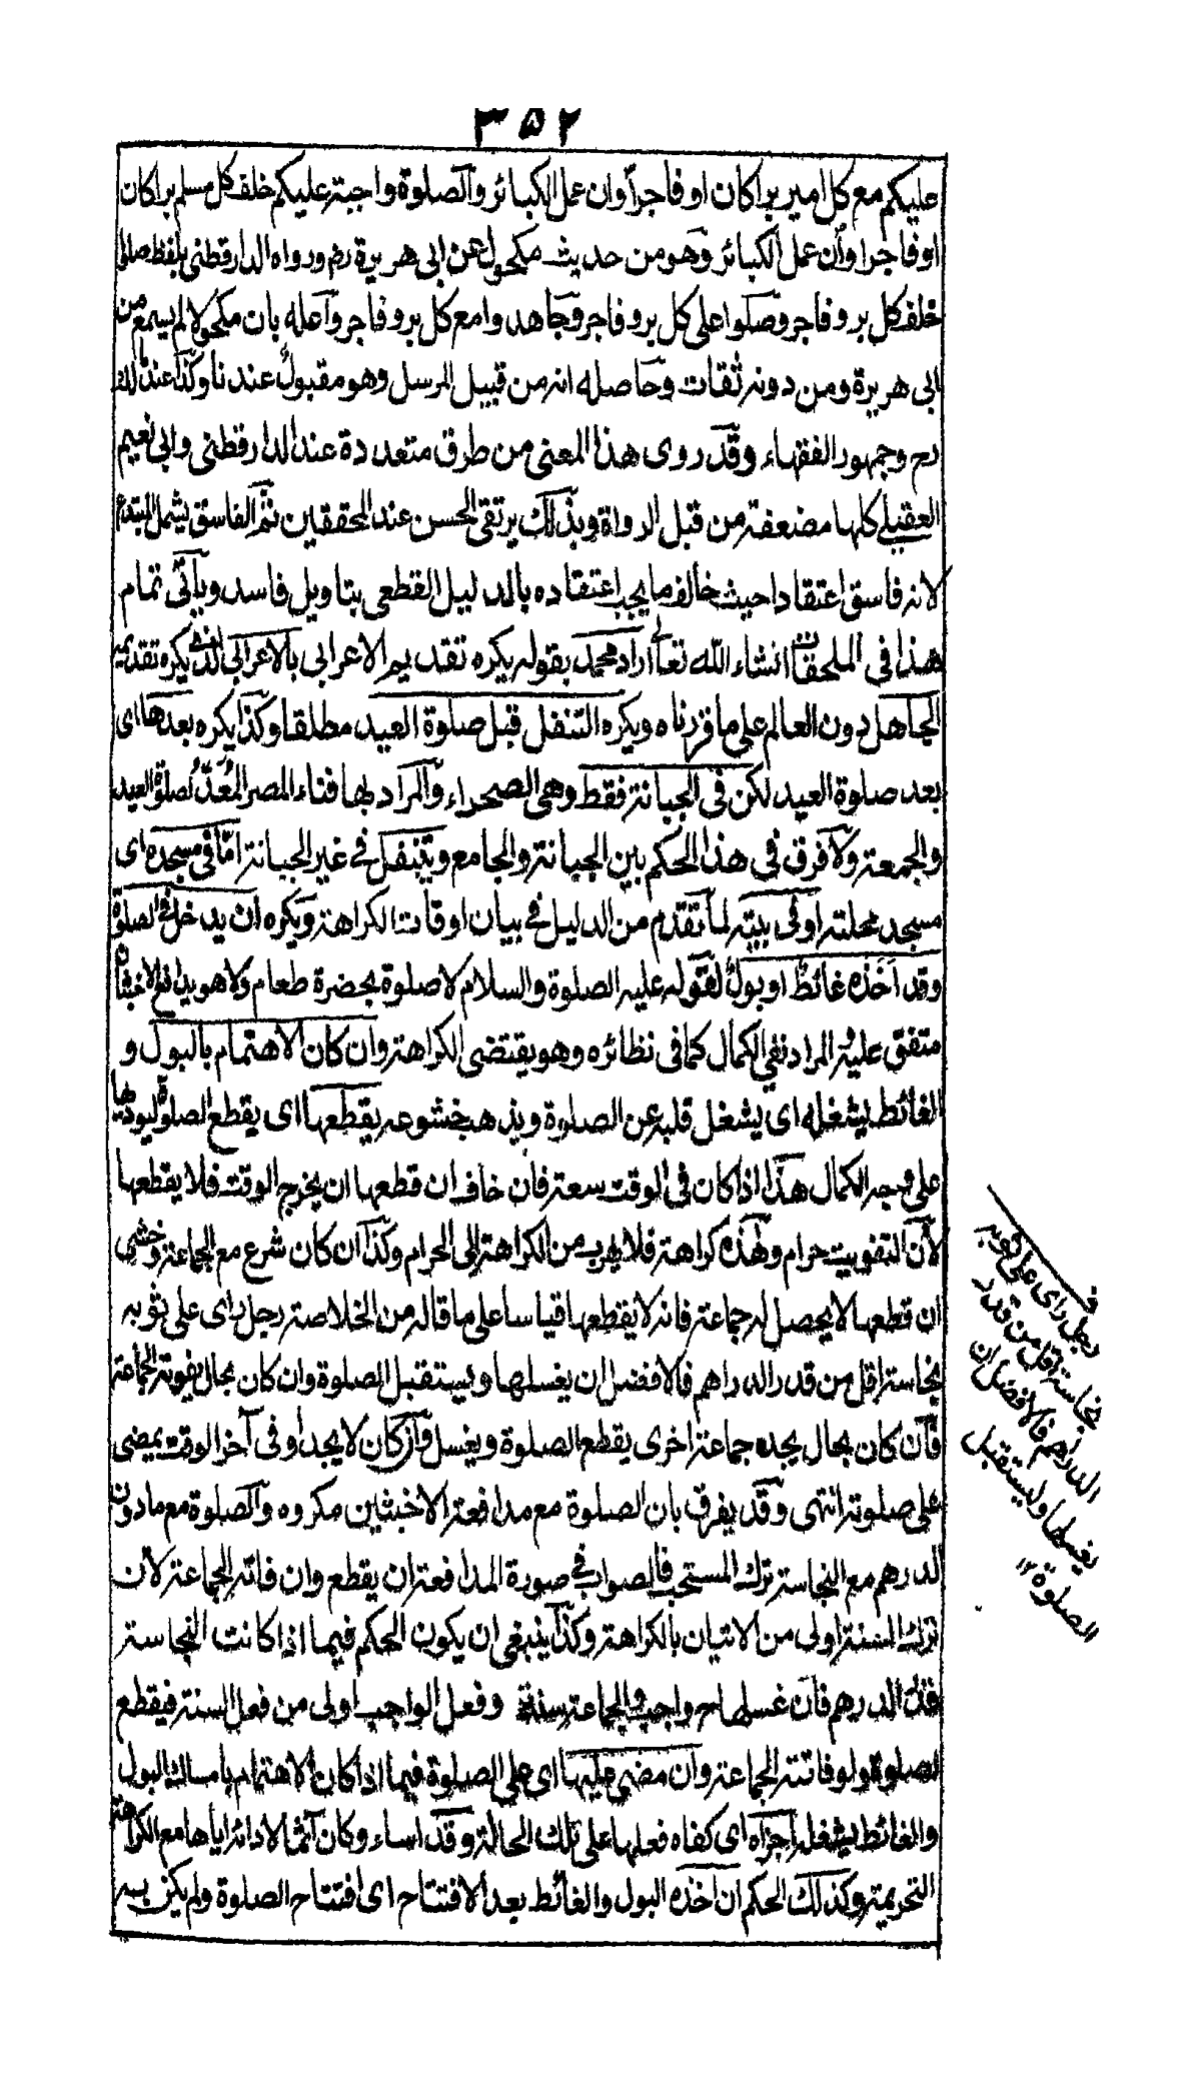 ٣٥٢
عليكم مع كل امير برا كان او فاجرا وان عمل الكبائر والصلوة واجبة عليكم خلف كل مسلم برا كان
او فاجرا وان عمل الكبائر وهو من حديث مكحول عن ابى هريرة رض ورواه الدارقطنى بلفظ صلوا
خلف كل بر وفاجر وصلوا على كل بر وفاجر وجاهدوا مع كل بر وفاجر واعله بان مكحولا لم يسمع من
ابى هريرة ومن دونه ثقات وحاصله انه من قبيل المرسل وهو مقبول عندنا وكذا عند مالك
رح وجمهور الفقهاء وقد روى هذا المعنى من طرق متعددة عند الدارقطنى وابى نعيم
العقيلى كلها مضعفة من قبل الرواة وبذلك يرتقى الحسن عند المحققين ثم الفاسق يشمل المبتدع
لانه فاسق اعتقادا حيث خالف ما يجب اعتقاده بالدليل القطعى بتاويل فاسد ويأتى تمام
هذا فى الملحقات انشاء الله تعالى اراد محمد بقوله يكره تقديم الاعرابى بالاعرابى الذى يكره تقديمه
الجاهل دون العالم على ما قررناه ويكره التنفل قبل صلوة العيد مطلقا وكذا يكره بعدها اى
بعد صلوة العيد لكن فى الجبانة فقط وهى الصحراء والمراد بها فناء المصر المُعَدّ لصلوة العيد
والجمعة ولا فرق فى هذا الحكم بين الجبانة والجامع ويتنفل فى غير الجبانة اما فى مسجده اى
مسجد محلته او فى بيته لما تقدم من الدليل فى بيان اوقات الكراهة ويكره ان يدخل فى الصلوة
وقد اخذه غائط او بول لقوله عليه الصلوة والسلام لا صلوة بحضرة طعام ولا هو يدافع الاخبثان
متفق عليه المراد نفى الكمال كما فى نظائره وهو يقتضى الكراهة وان كان الاهتمام بالبول و
الغائط يشغله اى يشغل قلبه عن الصلوة ويذهب خشوعه يقطعها اى يقطع الصلوة ليوديها
على وجه الكمال هذا اذا كان فى الوقت سعة فان خاف ان قطعها ان يخرج الوقت فلا يقطعها
لان التفويت حرام ولهذه كراهة فلا يهرب من الكراهة الى الحرام وكذا ان كان شرع مع الجماعة وخشى
ان قطعها لا يحصل له جماعة فانه لا يقطعها قياسا على ما قاله من الخلاصة رجل راى على ثوبه
نجاسة اقل من قدر الدراهم فالافضل ان يغسلها ويستقبل الصلوة وان كان بحال يفوته الجماعة
فان كان بحال يجد جماعة اخرى يقطع الصلوة ويغسل وان كان لا يجد او فى آخر الوقت يمضى
على صلوته انتهى وقد يفرق بان الصلوة مع مدافعة الاخبثين مكروه والصلوة مع ما دون
الدرهم مع النجاسة ترك المستحب فالصواب فى صورة المدافعة ان يقطع وان فاتته الجماعة لان
ترك السنة اولى من الاتيان بالكراهة وكذا ينبغى ان يكون الحكم فيما اذا كانت النجاسة
قدر الدرهم فان غسلها واجب والجماعة سنة وفعل الواجب اولى من فعل السنة فيقطع
الصلوة ولو فاتته الجماعة وان مضى عليها اى على الصلوة فيما اذا كان الاهتمام بامساك البول
والغائط يشغله اجزاه اى كفاه فعلها على تلك الحالة وقد اساء وكان آثما لادائه اياها مع الكراهة
التحريمة وكذلك الحكم ان اخذه البول والغائط بعد الافتتاح اى افتتاح الصلوة ولم يكن به
رجل راى على ثوبه
نجاسة اقل من قدر
الدراهم فالافضل ان
يغسلها وليستقبل
الصلوة ١٢